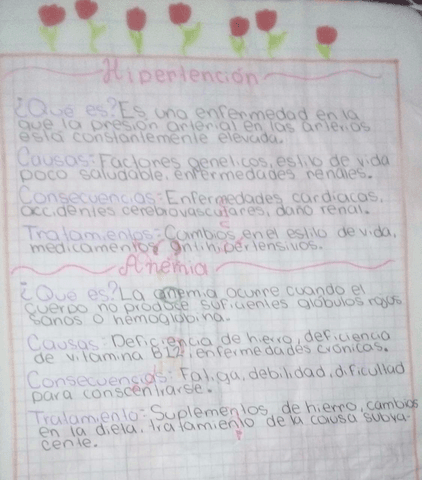 Hipertención
¿Qué es? Es una enfermedad en la
que la presión arterial en las arterias
está constantemente elevada.
Causas: Factores geneticos, estilo de vida
poco saludable, enfermedades renales.
Consecuencias: Enfermedades cardiacas,
accidentes cerebrovasculares, daño renal.
Tratamientos: Cambios en el estilo de vida,
medicamentos antihipertensivos.
Anemia
¿Qué es? La anemia ocurre cuando el
cuerpo no produce suficientes glóbulos rojos
sanos o hemoglobina.
Causas: Deficiencia de hierro, deficiencia
de vitamina B12, enfermedades cronicas.
Consecuencias: Fatiga, debilidad, dificultad
para conscentrarse.
Tratamiento: Suplementos de hierro, cambios
en la dieta, tratamiento de la causa subya-
cente.